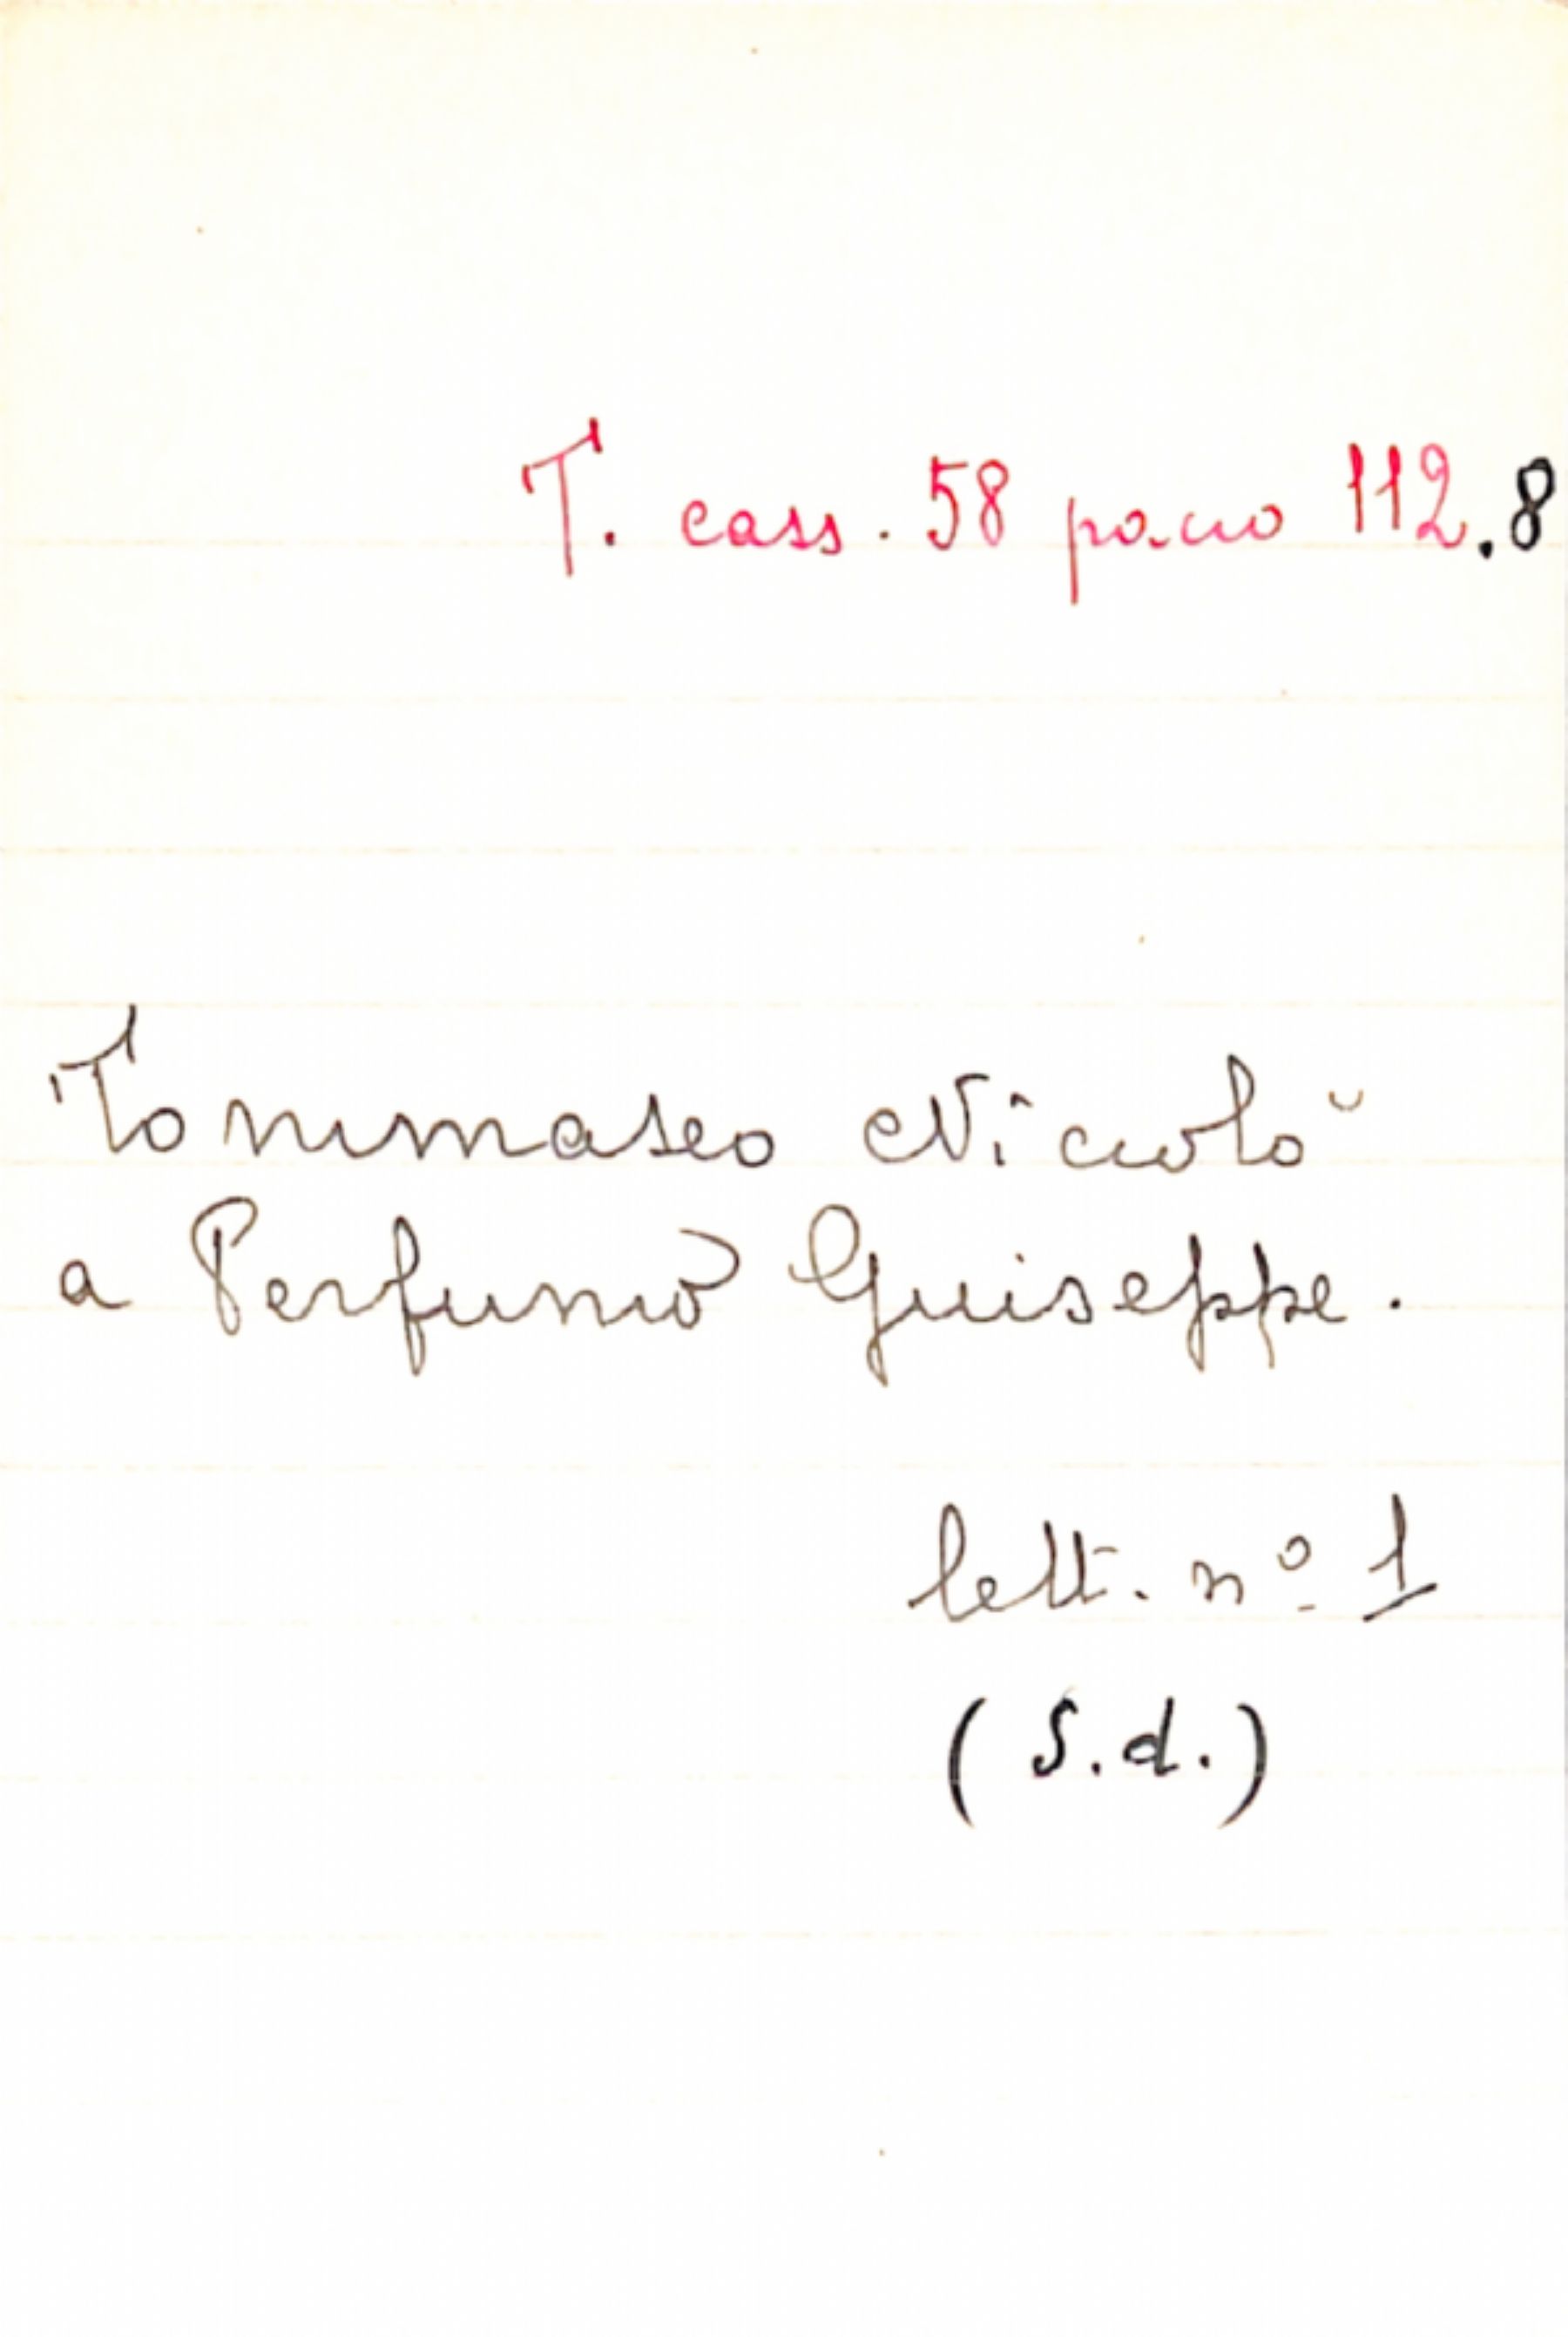 T. cass. 58 pacco 112.8
Tommaseo Niccolò
a Perfumo Giuseppe.
lett. nº 1
(S.d.)